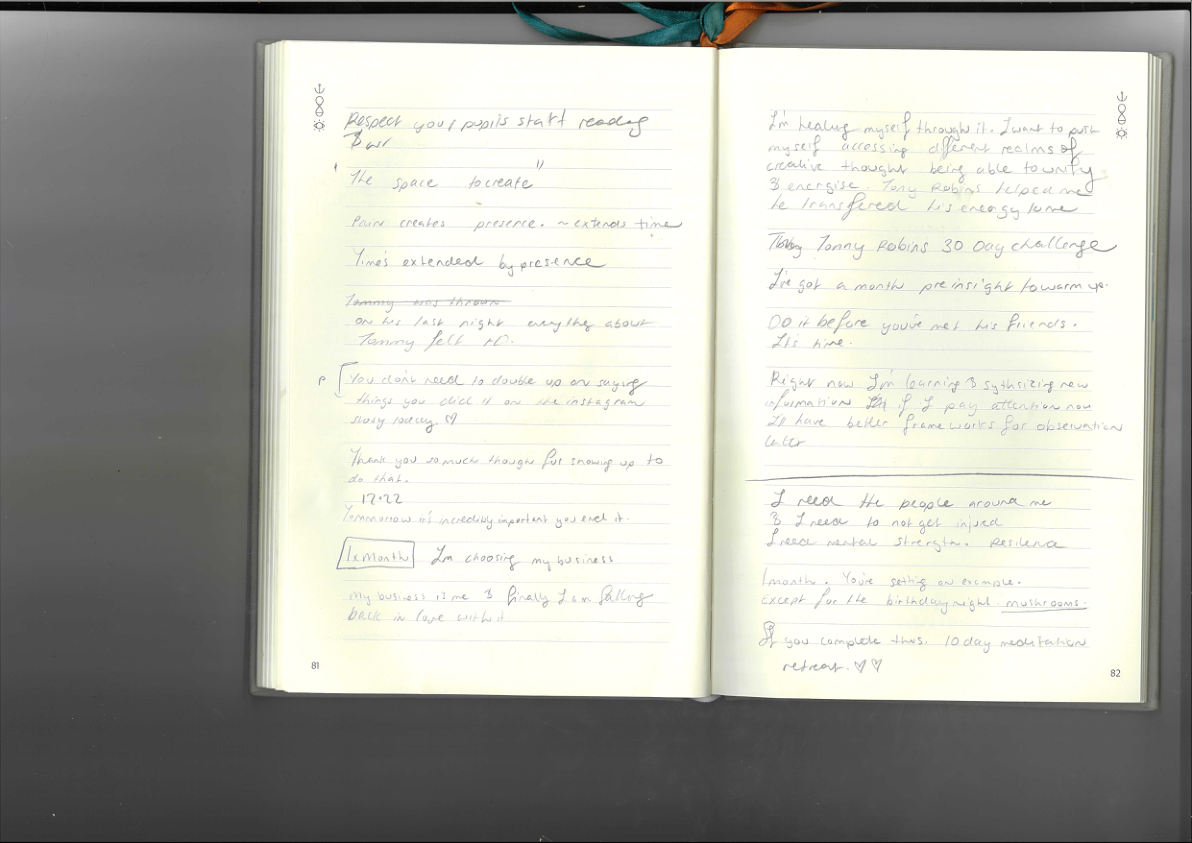 Respect your pupils start reading
"The space to create"
Pain creates presence. ~ extends time
Time's extended by presence
Tommy was thrown
on his last night everything about
Tommy felt HD.
P [You don't need to double up on saying
things you did it on the instagram
story today ♡
Thank you so much though for showing up to
do that.
17.22
Tommorrow it's incredibly important you end it.
1x Month I'm choosing my business
My business is me & finally I am falling
back in love with it
81
I'm healing myself through it. I want to push
myself accessing different realms of
creative thought being able to unify
& energise. Tony Robins helped me
he transfered his energy to me
Tonny Robins 30 Day challenge
I've got a month pre insight to warm up.
Do it before you've met his friends.
It's time.
Right now I'm learning & sythsizing new
information if I pay attention now
I'll have better frameworks for observation
later
I need the people around me
& I need to not get injued
I need mental strength. Resilence
1 month. You're setting an example.
Except for the birthday night. mushrooms.
If you complete this. 10 day meditation
retreat. ♡♡
82